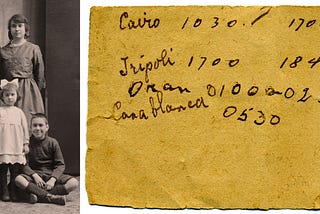 Cairo 1030. 170
Tripoli 1700 184
Oran 0100-02
Casablanca 0530